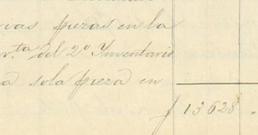 vas piezas en la
r.ta del 2º Inventario
a sola pieza en
ƒ 13628.